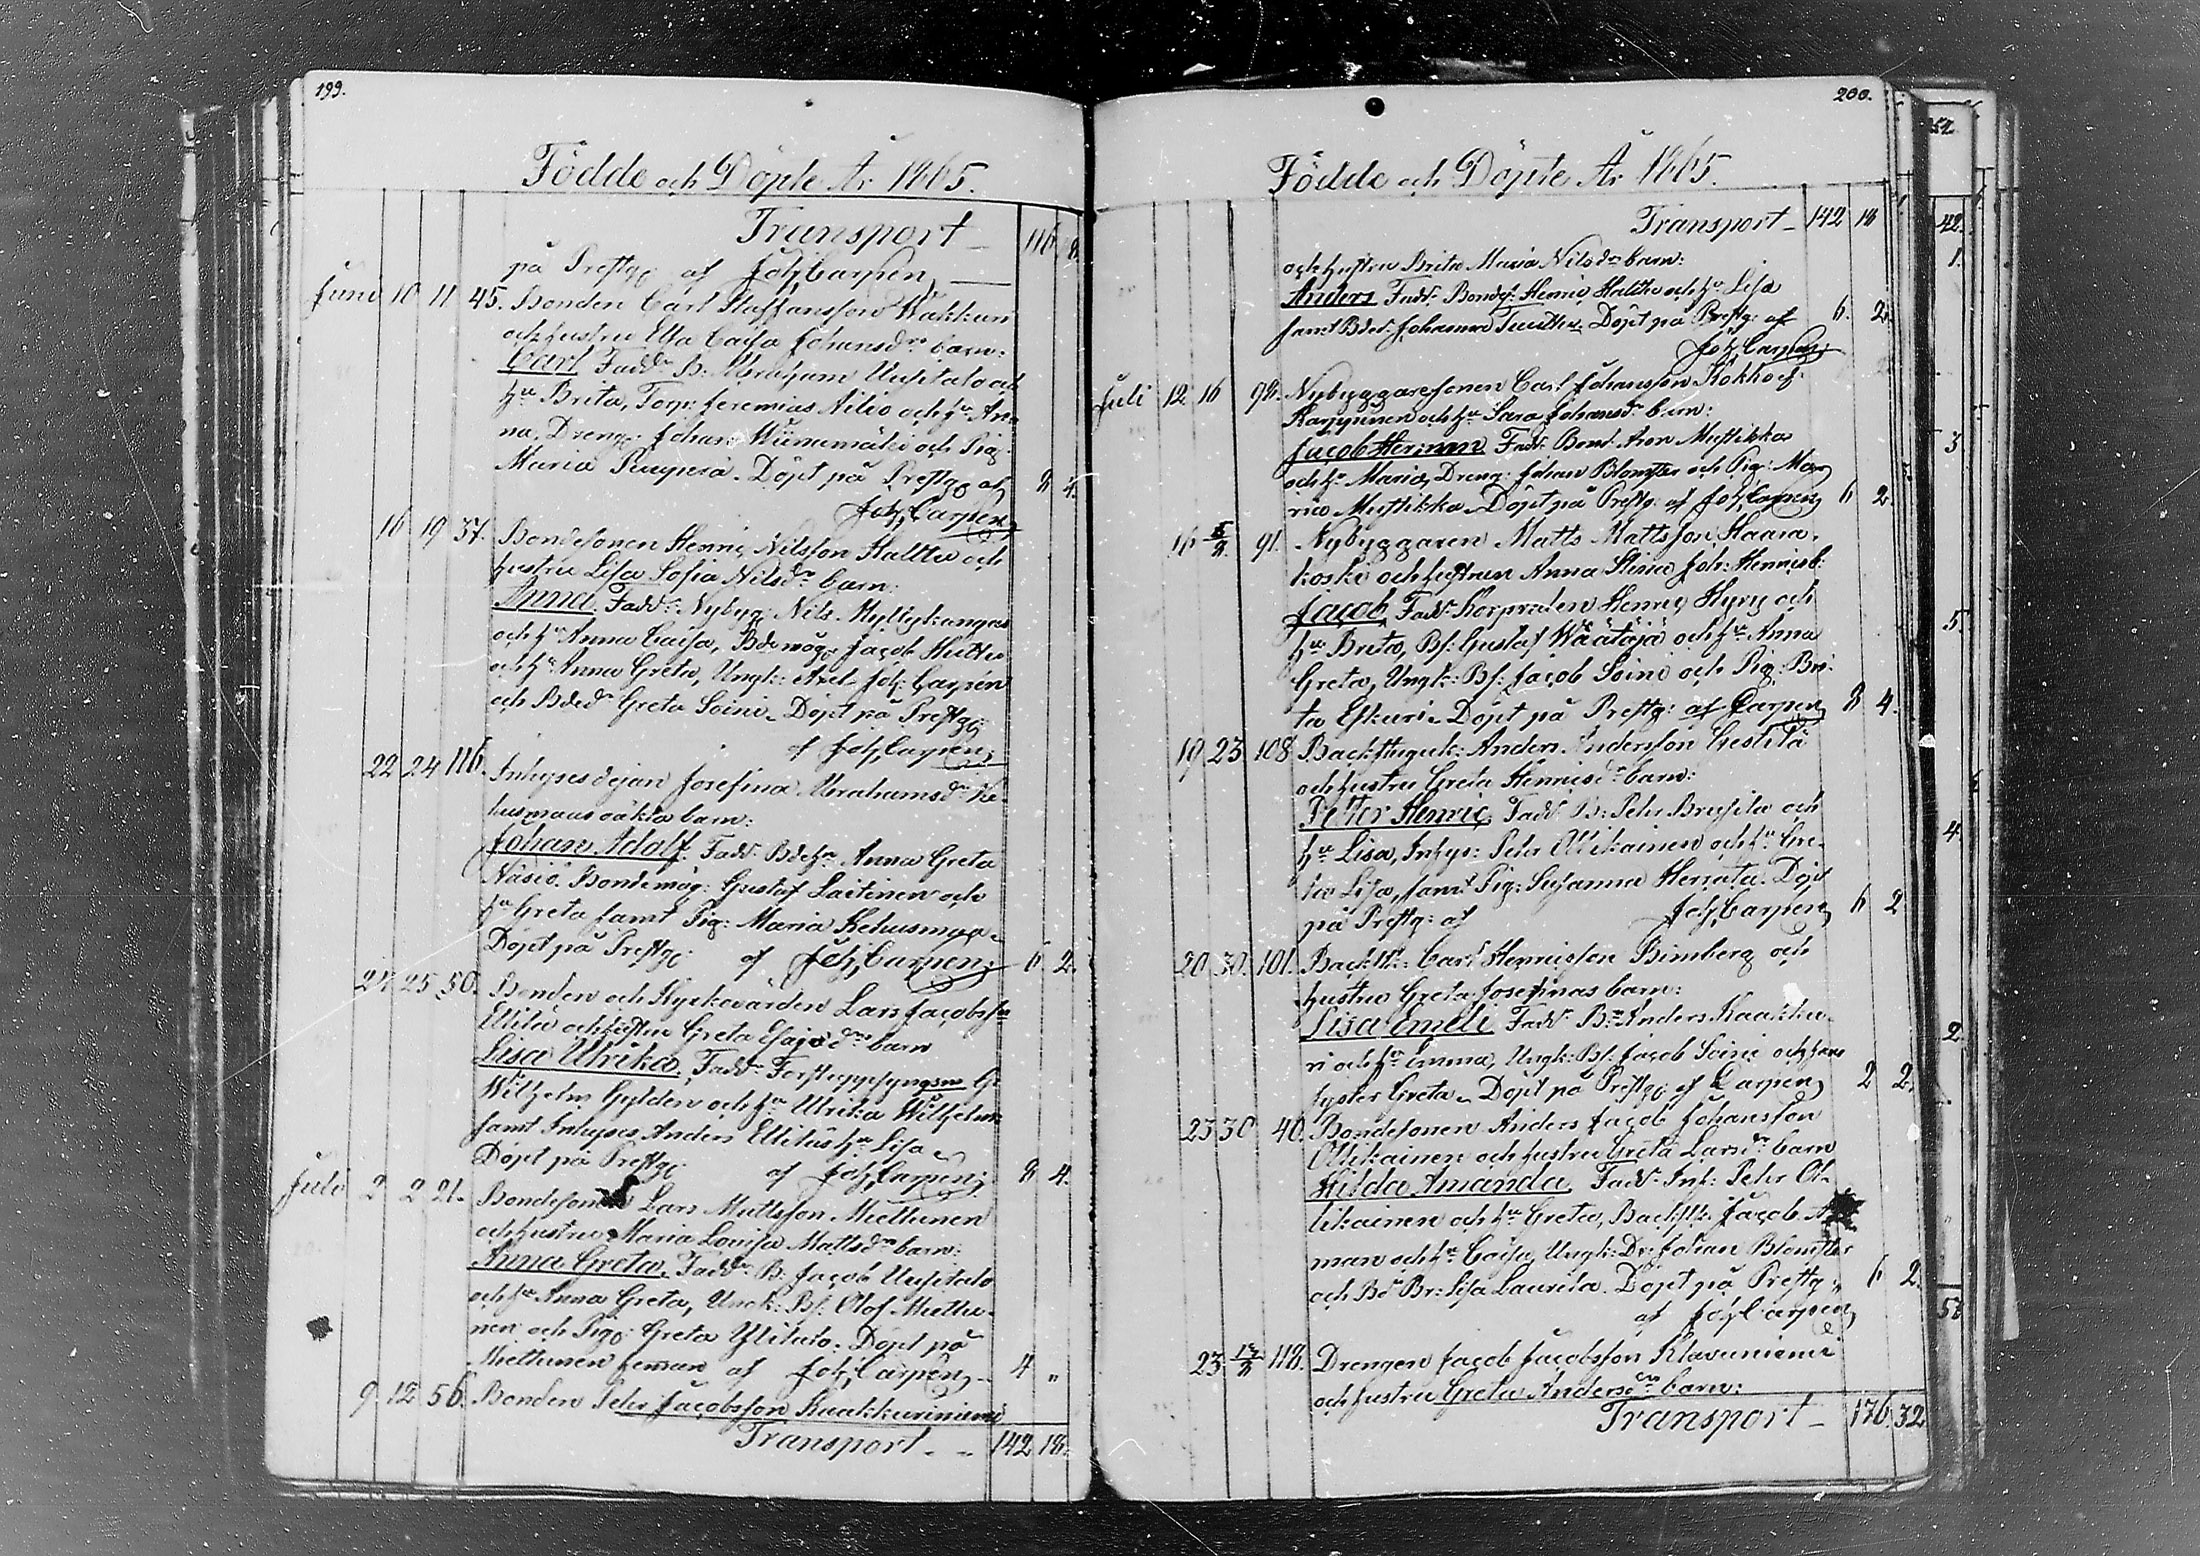 199.
Födde och Döpte År 1865.
Transport 116 8.
på Prestg: af Joh, Carpen,
Juni 10 11 45. Bonden Carl Staffansson Wakkuri
och hustru Ulla Caisa Johansdr barn:
Carl Faddr B: Abraham Uusitalo och
hu Brita, Torp: Jeremias Niliö och hu An-
na, Dreng: Johan Wiinamäki och Pig:
Maria Puuperä. Döpt på Prestg: af 8 4.
Joh, Carpen,
16 19 37. Bondesonen Henric Nilsson Halttu och
hustru Lisa Sofia Nilsdr barn:
Anna. Faddr: Nybyg: Nils Myllykangas
och hu Anna Caisa, Bdemåg: Jacob Huttu
och hu Anna Greta, Ungk: Axel Joh: Carpén
och Bdedr Greta Soini. Döpt på Prestg:
af Joh, Carpen;
22 24 116. Inhysesdejan Josefina Abrahamsdr Ke-
husmaas oäkta barn:
Johan Adolf. Faddr Bdehu Anna Greta
Näsiö. Bondemåg: Gustaf Laitinen och
hu Greta samt Pig: Maria Kehusmaa.
Döpt på Prestg: af Joh, Carpen; 6 2.
24 25 50. Bonden och Kyrkovärden Lars Jacobsson
Ellilä och hustru Greta Esaiædr barn
Lisa Ulrika. Faddr Forstuppsyngsm G:
Wilhelm Gyldén och hu Ulrika Wilhelm:
samt Inhyses Anders Elliläs hu Lisa.
Döpt på Prestg: af Joh, Carpen; 8 4.
Juli 2 2 21. Bondesonen Lars Mattsson Miettunen
och hustru Maria Lovisa Mattsdr barn:
Anna Greta. Faddr B. Jacob Uusitalo
och hu Anna Greta, Ungk: Bs. Olof Miettu-
nen och Pig: Greta Ylitalo. Döpt på
Miettunen heman af Joh, Carpén, 4 "
9. 12 56. Bonden Pehr Jacobsson Kaakkuriniemi
Transport 142 18.
200.
Födde och Döpte År 1865.
Transport 142 18
och hustru Brita Maria Nilsdr barn:
Anders Faddr Bondes: Henric Halttu och hu Lisa
samt Bdedr Johanna Tuuttu. Döpt på Prestg: af 6. 2.
Joh, Carpen;
Juli 12 16 98. Nybyggaresonen Carl Johansson Kokko
Karppinen och hu Sara Johansdr barn:
Jacob Herman Faddr Bond: Aron Mustikka
och hu Maria, Dreng: Johan Blomster och Pig: Ma-
ria Mustikka. Döpt på Prestg: af Joh, Carpen, 6 2.
16 6/8. 91. Nybyggaren Matts Mattsson Haara-
koski och hustrun Anna Stina Joh: Hennis b:
Jacob. Faddr Korpralen Henric Hyry och
hu Brita, Bs: Gustaf Wäätäjä och hu Anna
Greta, Ungk: Bs: Jacob Soini och Pig: Bri-
ta Eskuri. Döpt på Prestg: af Carpen, 8 4.
19 23 108 Backstuguk: Anders Andersson Gestilä
och hustru Greta Henricsdr barn:
Petter Henric, Faddr B: Pehr Brusila och
hu Lisa, Inhys: Pehr Ollikainen och hu Gre-
ta Lisa, samt Pig: Susanna Herrala. Döpt
på Prestg: af Joh, Carpen, 6 2.
20 30. 101. Backst: Carl Henricsson Bimberg och
hustru Greta Josefinas barn:
Lisa Emeli Faddr Bn Anders Kaakku-
ri och hu Emma, Ungk: Bs: Jacob Soini och hans
syster Greta. Döpt på Prestg: af Carpen, 2 2.
23 30 40. Bondesonen Anders Jacob Johansson
Ollikainen och hustru Greta Larsdr barn
Hilda Amanda, Faddr Inh: Pehr Ol-
likainen och hu Greta, Backst: Jacob
man och hu Caisa, Ungk: Dr: Johan Blomster
och Bd Br: Lisa Laurila. Döpt på Prestg: " 6 2.
af Joh, Carpen,
23 13/8 118. Drengen Jacob Jacobsson Klavuniemi
och hustru Greta Andersdr barn:
Transport 176. 32